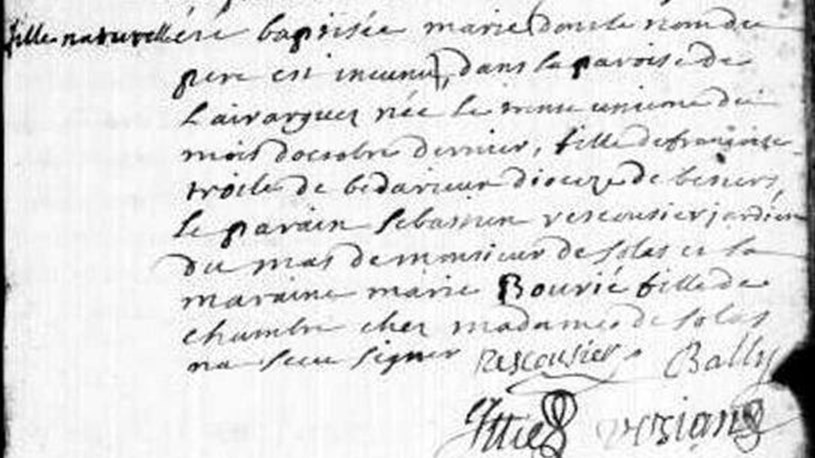 fille naturelle
été baptisée marie dont le nom du
pere est inconnu, dans la paroise de
Lairargues née le trente unieme du
mois doctobre dernier, fille de françoise
troile de bedarieux dioceze de besiers,
le parain sebastien rescousier jardinier
du mas de monsieur de solas et la
maraine marie Bourié fille de
chambre cher madame de solas
na sceu signer rescousier Bally